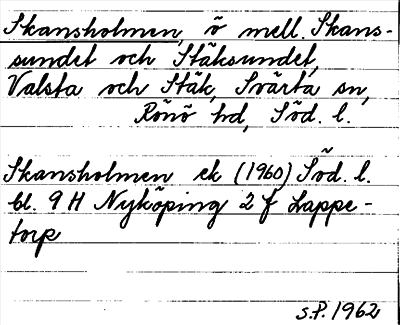 Skansholmen, ö mell. Skans-
sundet och Stäksundet,
Valsta och Stäk, Svärta sn,
Rönö hd, Söd. l.
Skansholmen ek (1960) Söd. l.
bl. 9 H Nyköping 2 f Lappe-
torp
S.P. 1962